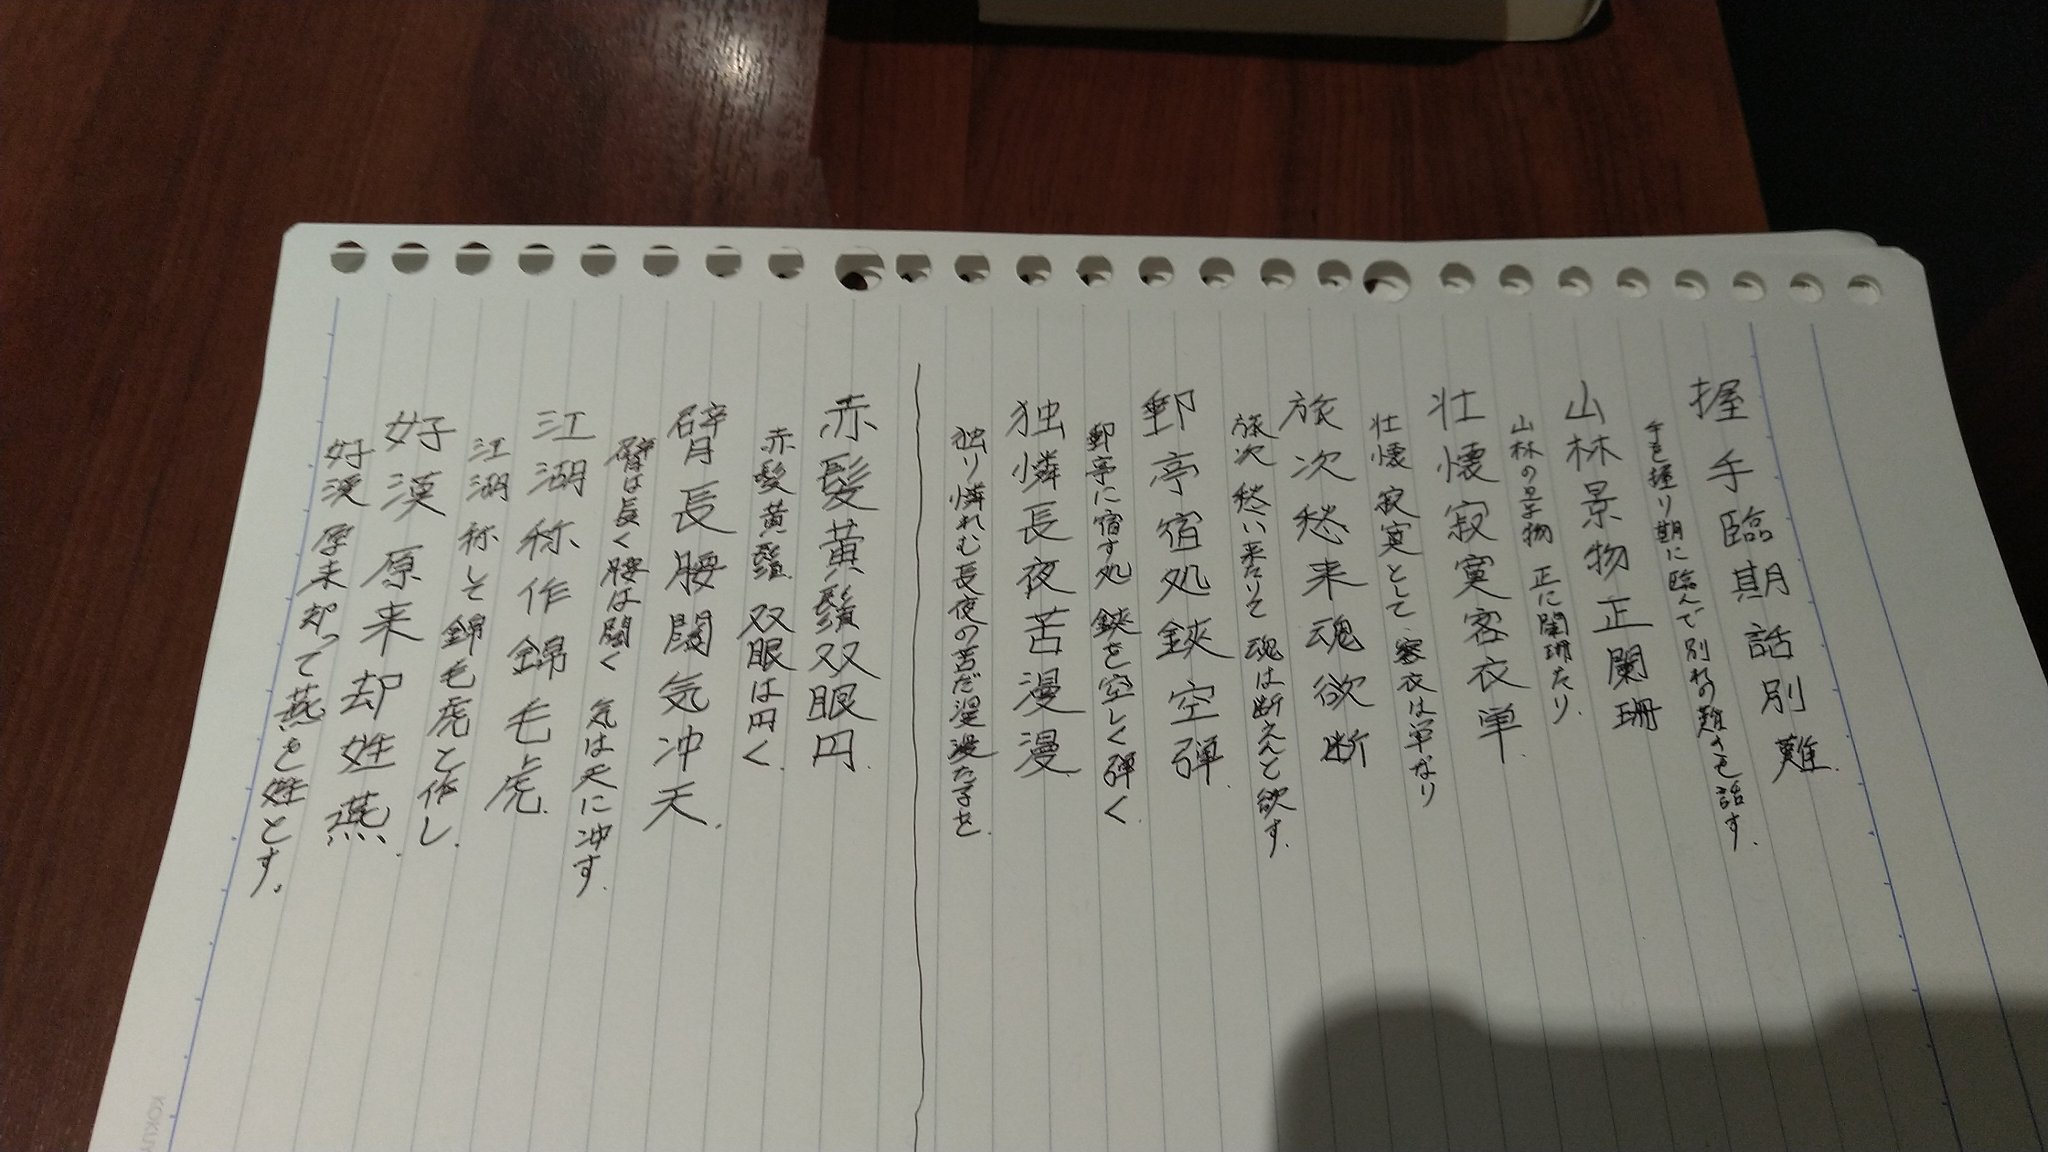 握手臨期話別難
手を握り期に臨んで別れの難きを話す.
山林景物正闌珊
山林の景物 正に闌珊たり.
壮懐寂寞客衣単.
壮懐 寂寞として 客衣は単なり
旅次愁来魂欲断
旅次 愁い来たりて 魂は断えんと欲す.
郵亭宿処鋏空弾.
郵亭に宿す処 鋏を空しく弾く
独憐長夜苦漫漫
独り憐れむ長夜の苦だ漫漫たるを.
赤髪黄鬚双眼円.
赤髪黄鬚 双眼は円く.
臂長腰闊気冲天.
臂は長く腰は闊く 気は天に冲す.
江湖称作錦毛虎.
江湖 称して錦毛虎と作し.
好漢原来却姓燕.
好漢 原来却って燕を姓とす。